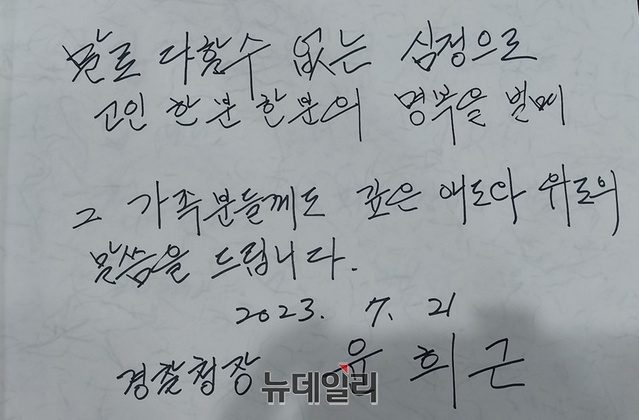 말로 다할수 없는 심정으로
고인 한분 한분의 명복을 빌며
그 가족분들께도 깊은 애도와 위로의
말씀을 드립니다.
2023. 7. 21
경찰청장 윤희근
뉴데일리